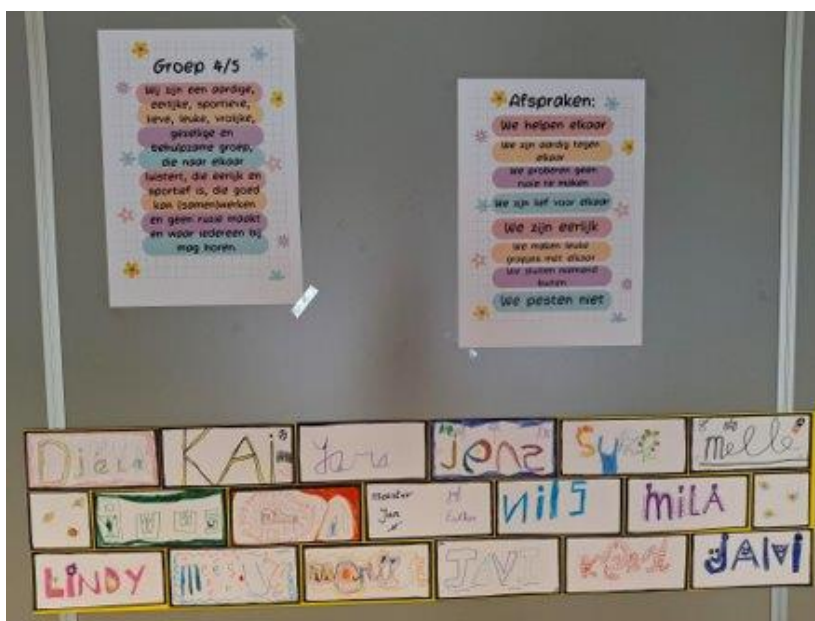 Groep 4/5
Wij zijn een aardige,
eerlijke, sportieve,
lieve, leuke, vrolijke,
gezellige en
behulpzame groep,
die naar elkaar
luistert, die eerlijk en
sportief is, die goed
kan (samen)werken
en geen ruzie maakt
en waar iedereen bij
mag horen.
Afspraken:
We helpen elkaar
We zijn aardig tegen
elkaar
We proberen geen
ruzie te maken
We zijn lief voor elkaar
We zijn eerlijk
We maken leuke
grapjes met elkaar
We sluiten niemand
buiten
We pesten niet
KAi
Jens
melle
meester
Jan
Nils
MILA
LINDY
JAIVI